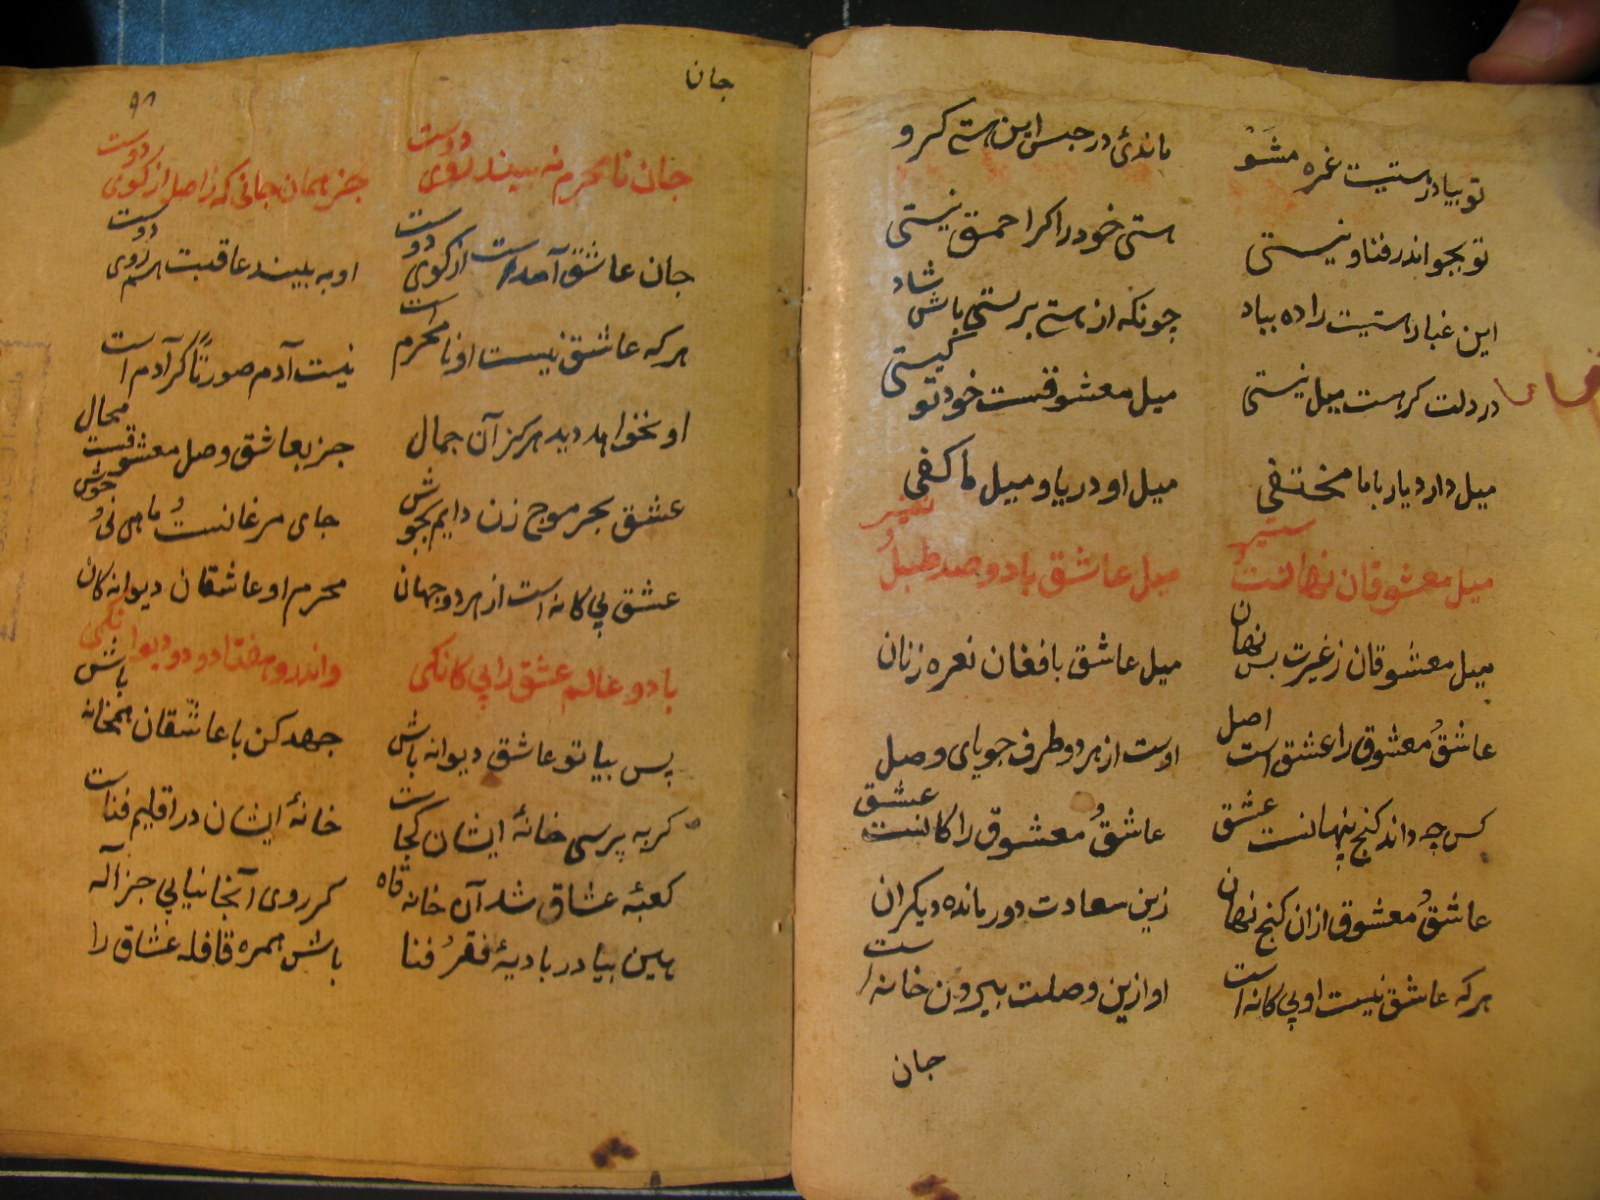 تو بیا در ستیت غره مشو ماندهٔ در حبس این هستی کرو
تو بجو اندر فنا و نیستی هستی خود را کر احمق نیستی
این غبار هستیت را ده بباد چونکه از هستی برستی باش شاد
در دلت کر هست میل نیستی میل معشوقست خود تو کیستی
میل دارد یار با ما مختفی میل او دریا و میل ما کفی
میل معشوقان نهانست ستیر میل عاشق با دو صد طبل و نفیر
میل معشوقان ز غیرت بس نهان میل عاشق با فغان نعره زنان
عاشقُ معشوق را عشق است اصل اوست از هر دو طرف جویای وصل
کس چه داند کنج پنهانست عشق عاشقُ معشوق را کانست عشق
عاشقُ معشوق ازان کنج نهان زین سعادت دور مانده دیکران
هر که عاشق نیست او بی کانه است او ازین وصلت بیرون خانه است
جان
جان
۹۸
جان نا محرم نه بیند روی دوست جز همان جانی که ز اصل از کوی دوست
جان عاشق آمده است از کوی دوست او به بیند عاقبت هم روی دوست
هر که عاشق نیست او نا محرم است نیست آدم صورتاً کر آدم است
او نخواهد دید هرکز آن جمال جز بعاشق وصل معشوقست محال
عشق بحر موج زن دایم بجوش جای مرغانستُ ماهی نیُ خوش
عشق بی کانه است از هر دو جهان محرم او عاشقان دیوانه کان
با دو عالم عشق را بی کانکی واندرو هفتاد و دو دیوانکی
پس بیا تو عاشق دیوانه باش جهد کن با عاشقان همخانه باش
کر به پرسی خانهٔ ایشان کجاست خانهٔ ایشان در اقلیم فناست
کعبهٔ عشاق شد آن خانه قاه کر روی آنجا نیابی جز آله
هین بیا در بادیهٔ فقرُ فنا باش همره قافله عشاق را